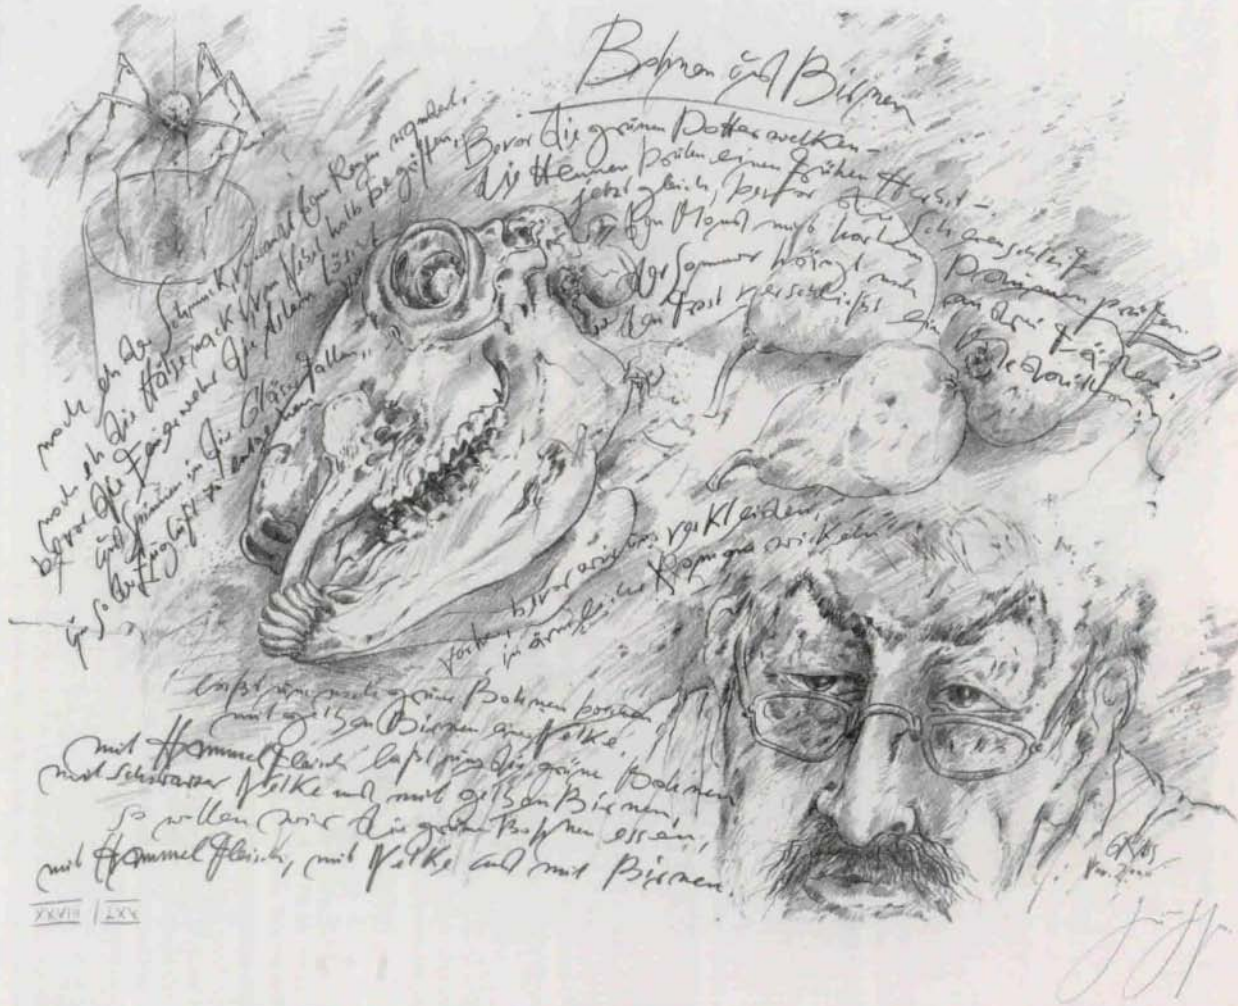 Bohnen und Birnen
Bevor die grünen Dotter welken –
die Hennen brüten einen frühen Herbst –,
jetzt gleich, bevor die Scherenschleifer
den Mond mit hartem Daumen prüfen,
der Sommer hängt noch an drei Fäden,
den Frost verschließt ein Medaillon,
noch eh der Schmuck, verwandt dem Regen wandert,
noch eh die Hälse nackt, vom Nebel halb begriffen,
bevor die Feuerwehr die Astern löscht
und Spinnen in die Gläser fallen,
um so der Zugluft zu entgehen,
vorher, bevor wir uns verkleiden,
in ärmliche Romane wickeln
laßt uns noch grüne Bohnen brechen
mit gelben Birnen, einer Nelke,
mit Hammelfleisch laßt uns die grünen Bohnen
mit schwarzer Nelke und mit gelben Birnen,
so wollen wir die grünen Bohnen essen,
mit Hammelfleisch, mit Nelke und mit Birnen.
XXVIII / LXX